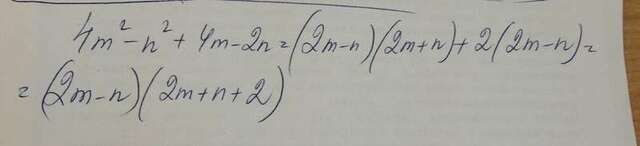 4m² - n² + 4m - 2n = (2m - n)(2m + n) + 2(2m - n) =
= (2m - n)(2m + n + 2)